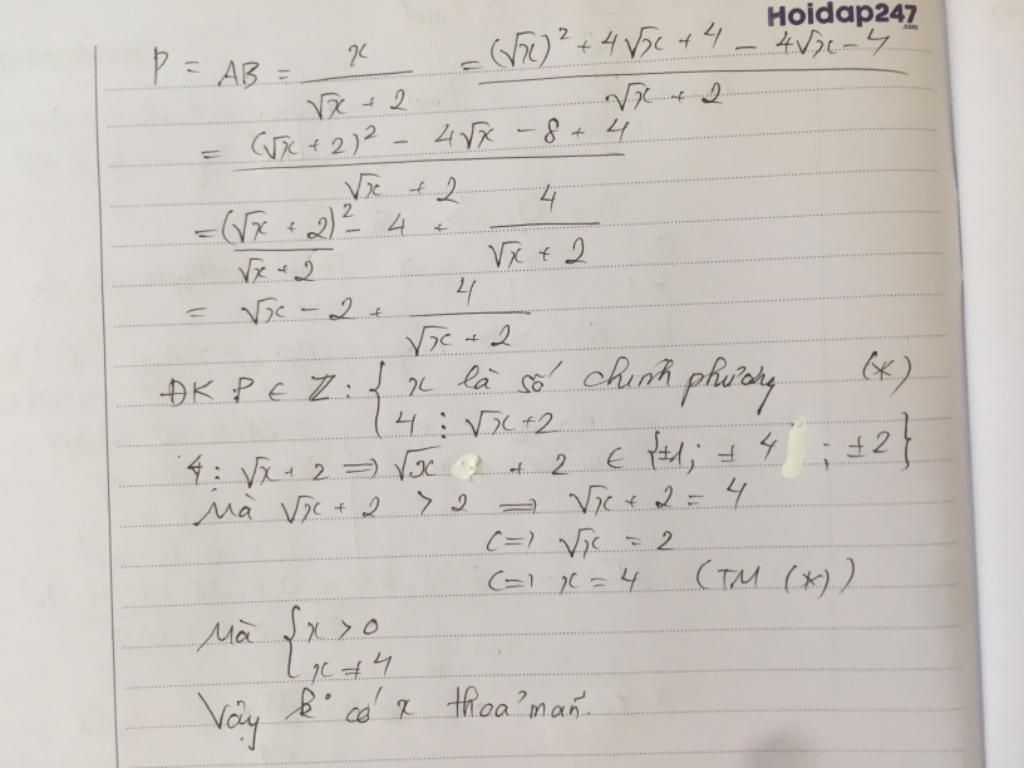 Hoidap247
.com
P = AB = x / (√x + 2) = ((√x)² + 4√x + 4 − 4√x − 4) / (√x + 2)
= ((√x + 2)² − 4√x − 8 + 4) / (√x + 2)
= (√x + 2)² / (√x + 2) − 4 + 4 / (√x + 2)
= √x − 2 + 4 / (√x + 2)
ĐK P ∈ ℤ : { x là số chính phương (*)
4 ⋮ √x + 2
4 ⋮ √x + 2 => √x + 2 ∈ {±1; ± 4 ; ±2}
Mà √x + 2 > 2 => √x + 2 = 4
<=> √x = 2
<=> x = 4 (TM (*))
Mà { x > 0
x ≠ 4
Vậy k° có x thoả mãn.